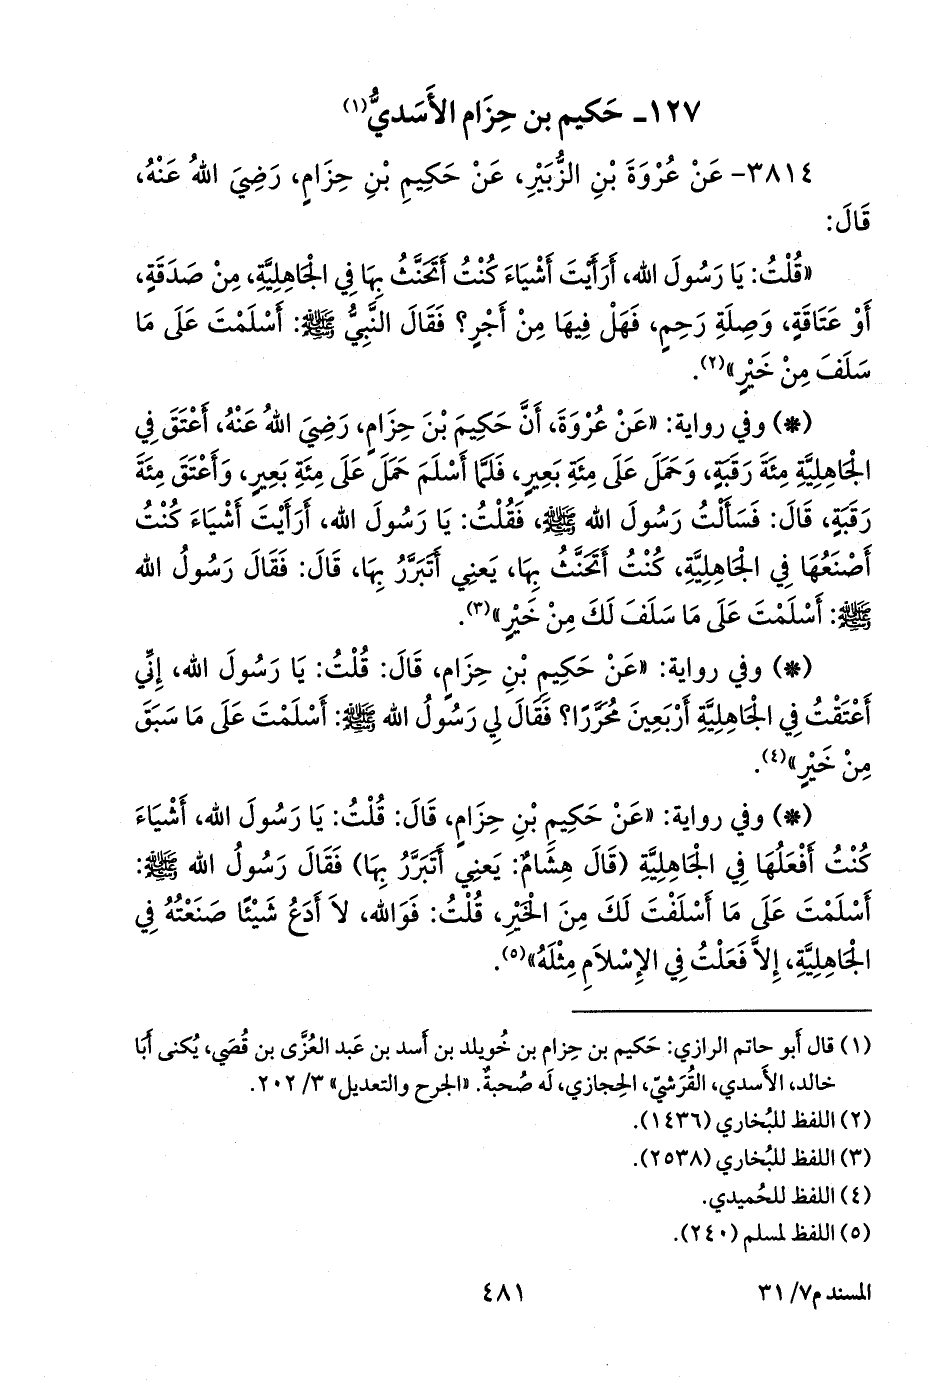 ١٢٧ـ حَكيم بن حِزَام الأَسَديُّ(١)
٣٨١٤- عَنْ عُرْوَةَ بْنِ الزُّبَيْرِ، عَنْ حَكِيمِ بْنِ حِزَامٍ، رَضِيَ اللهُ عَنْهُ،
قَالَ:
«قُلْتُ: يَا رَسُولَ الله، أَرَأَيْتَ أَشْيَاءَ كُنْتُ أَتَحَنَّثُ بِهَا فِي الْجَاهِلِيَّةِ، مِنْ صَدَقَةٍ،
أَوْ عَتَاقَةٍ، وَصِلَةِ رَحِمٍ، فَهَلْ فِيهَا مِنْ أَجْرٍ؟ فَقَالَ النَّبِيُّ ﷺ: أَسْلَمْتَ عَلَى مَا
سَلَفَ مِنْ خَيْرٍ»(٢).
(*) وفي رواية: «عَنْ عُرْوَةَ، أَنَّ حَكِيمَ بْنَ حِزَامٍ، رَضِيَ اللهُ عَنْهُ، أَعْتَقَ فِي
الْجَاهِلِيَّةِ مِئَةَ رَقَبَةٍ، وَحَمَلَ عَلَى مِئَةِ بَعِيرٍ، فَلَمَّا أَسْلَمَ حَمَلَ عَلَى مِئَةِ بَعِيرٍ، وَأَعْتَقَ مِئَةَ
رَقَبَةٍ، قَالَ: فَسَأَلْتُ رَسُولَ الله ﷺ، فَقُلْتُ: يَا رَسُولَ الله، أَرَأَيْتَ أَشْيَاءَ كُنْتُ
أَصْنَعُهَا فِي الْجَاهِلِيَّةِ، كُنْتُ أَتَحَنَّثُ بِهَا، يَعنِي أَتَبَرَّرُ بِهَا، قَالَ: فَقَالَ رَسُولُ الله
ﷺ: أَسْلَمْتَ عَلَى مَا سَلَفَ لَكَ مِنْ خَيْرٍ»(٣).
(*) وفي رواية: «عَنْ حَكِيمِ بْنِ حِزَامٍ، قَالَ: قُلْتُ: يَا رَسُولَ الله، إِنِّي
أَعْتَقْتُ فِي الْجَاهِلِيَّةِ أَرْبَعِينَ مُحَرَّرًا؟ فَقَالَ لِي رَسُولُ الله ﷺ: أَسْلَمْتَ عَلَى مَا سَبَقَ
مِنْ خَيْرٍ»(٤).
(*) وفي رواية: «عَنْ حَكِيمِ بْنِ حِزَامٍ، قَالَ: قُلْتُ: يَا رَسُولَ الله، أَشْيَاءَ
كُنْتُ أَفْعَلُهَا فِي الْجَاهِلِيَّةِ (قَالَ هِشَامٌ: يَعنِي أَتَبَرَّرُ بِهَا) فَقَالَ رَسُولُ الله ﷺ:
أَسْلَمْتَ عَلَى مَا أَسْلَفْتَ لَكَ مِنَ الْخَيْرِ، قُلْتُ: فَوَالله، لاَ أَدَعُ شَيْئًا صَنَعْتُهُ فِي
الْجَاهِلِيَّةِ، إِلاَّ فَعَلْتُ فِي الإِسْلاَمِ مِثْلَهُ»(٥).
(١) قال أَبو حاتم الرازي: حَكيم بن حِزام بن خُويلد بن أَسد بن عَبد العُزَّى بن قُصَي، يُكنى أَبَا
خالد، الأَسدي، القُرَشيّ، الحِجازي، لَه صُحبةٌ. «الجرح والتعديل» ٣/ ٢٠٢.
(٢) اللفظ للبُخاري (١٤٣٦).
(٣) اللفظ للبُخاري (٢٥٣٨).
(٤) اللفظ للحُميدي.
(٥) اللفظ لمسلم (٢٤٠).
المسند م٧/ ٣١
٤٨١